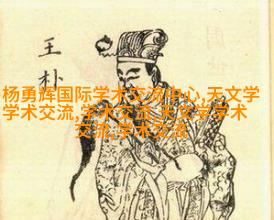 王朴
杨勇辉国际学术交流中心,天文学
学术交流,学术交流,天文学学术
交流,学术交流